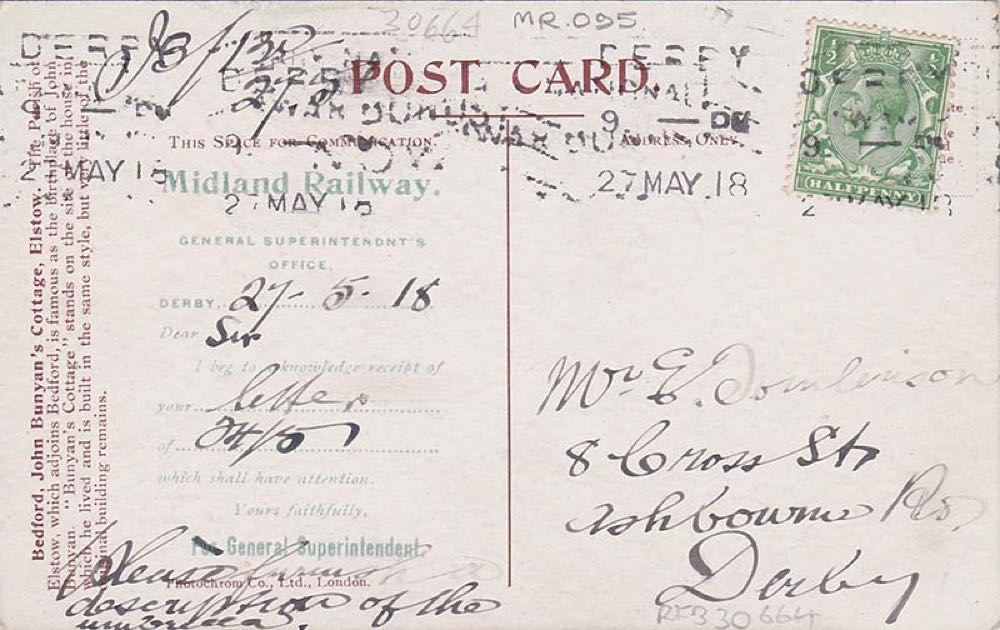 20664 MR.095
POST CARD.
THIS SPACE FOR COMMUNICATION.
ADDRESS ONLY.
DERBY
9
27 MAY 18
HALFPENNY
Bedford, John Bunyan's Cottage, Elstow. The Parish of
Elstow, which adjoins Bedford, is famous as the birthplace of John
Bunyan. "Bunyan's Cottage" stands on the site of the house in
which he lived and is built in the same style, but very little of the
original building remains.
Midland Railway.
GENERAL SUPERINTENDNT'S
OFFICE,
DERBY, 27-5-18
Dear Sir
I beg to acknowledge receipt of
your letter
of 24/5
which shall have attention.
Yours faithfully,
For General Superintendent
Please furnish a
description of the
umbrella.
Photochrom Co., Ltd., London.
Mr E. Tomlinson
8 Cross St
Ashbourne Rd
Derby
RFB30664